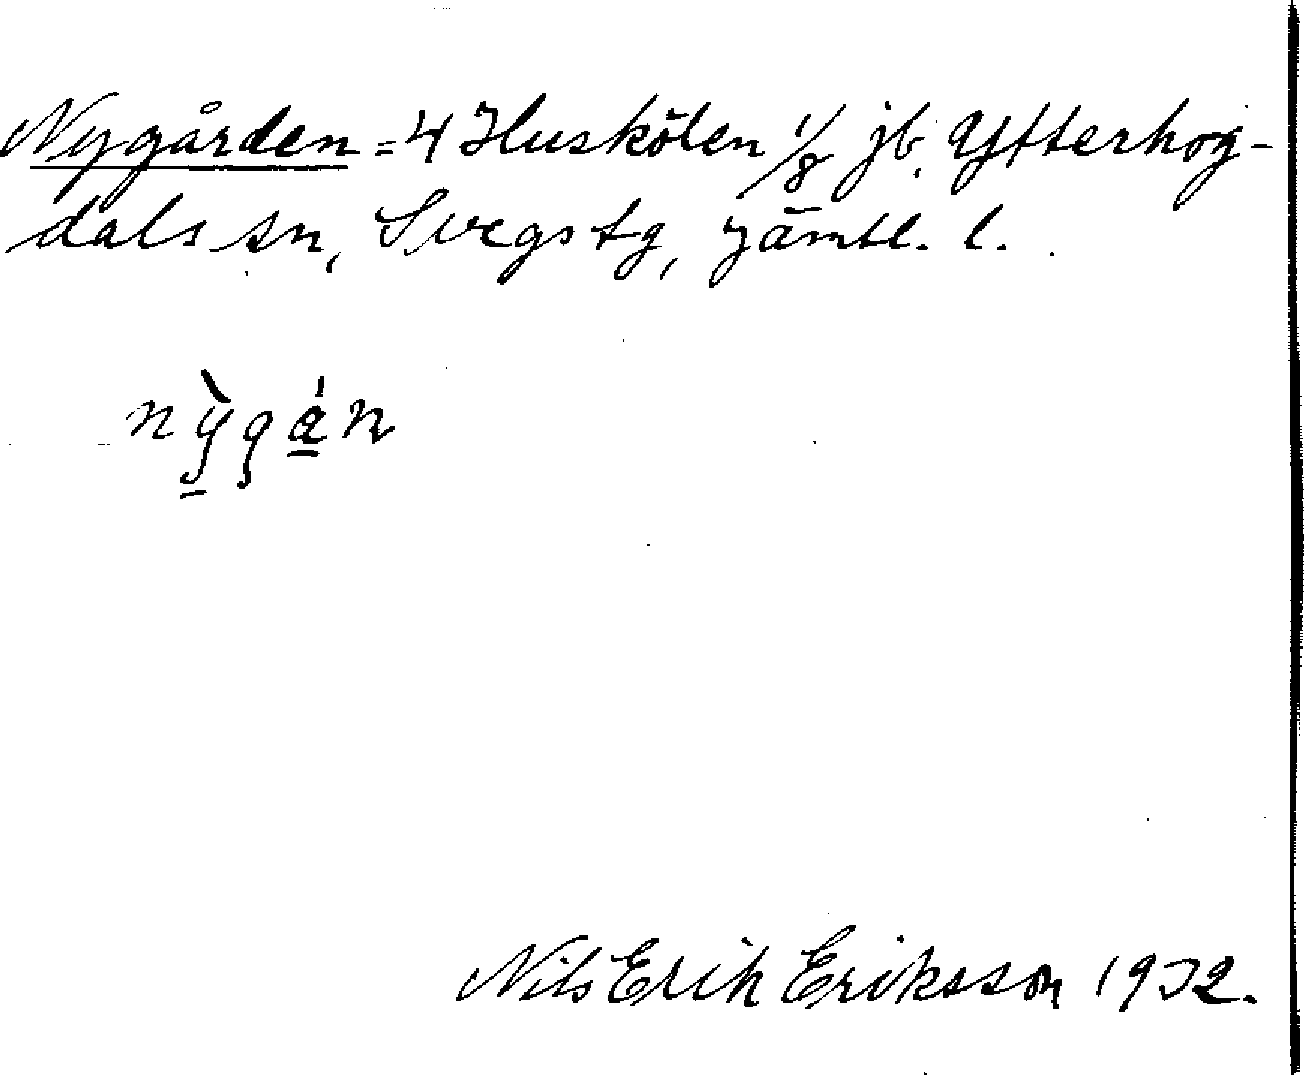 Nygården = 4 Huskölen 1/8 jb. Ytterhog-
dals sn, Svegs tg, Jämtl. l.
nỳgán
Nils Erik Eriksson 1932.